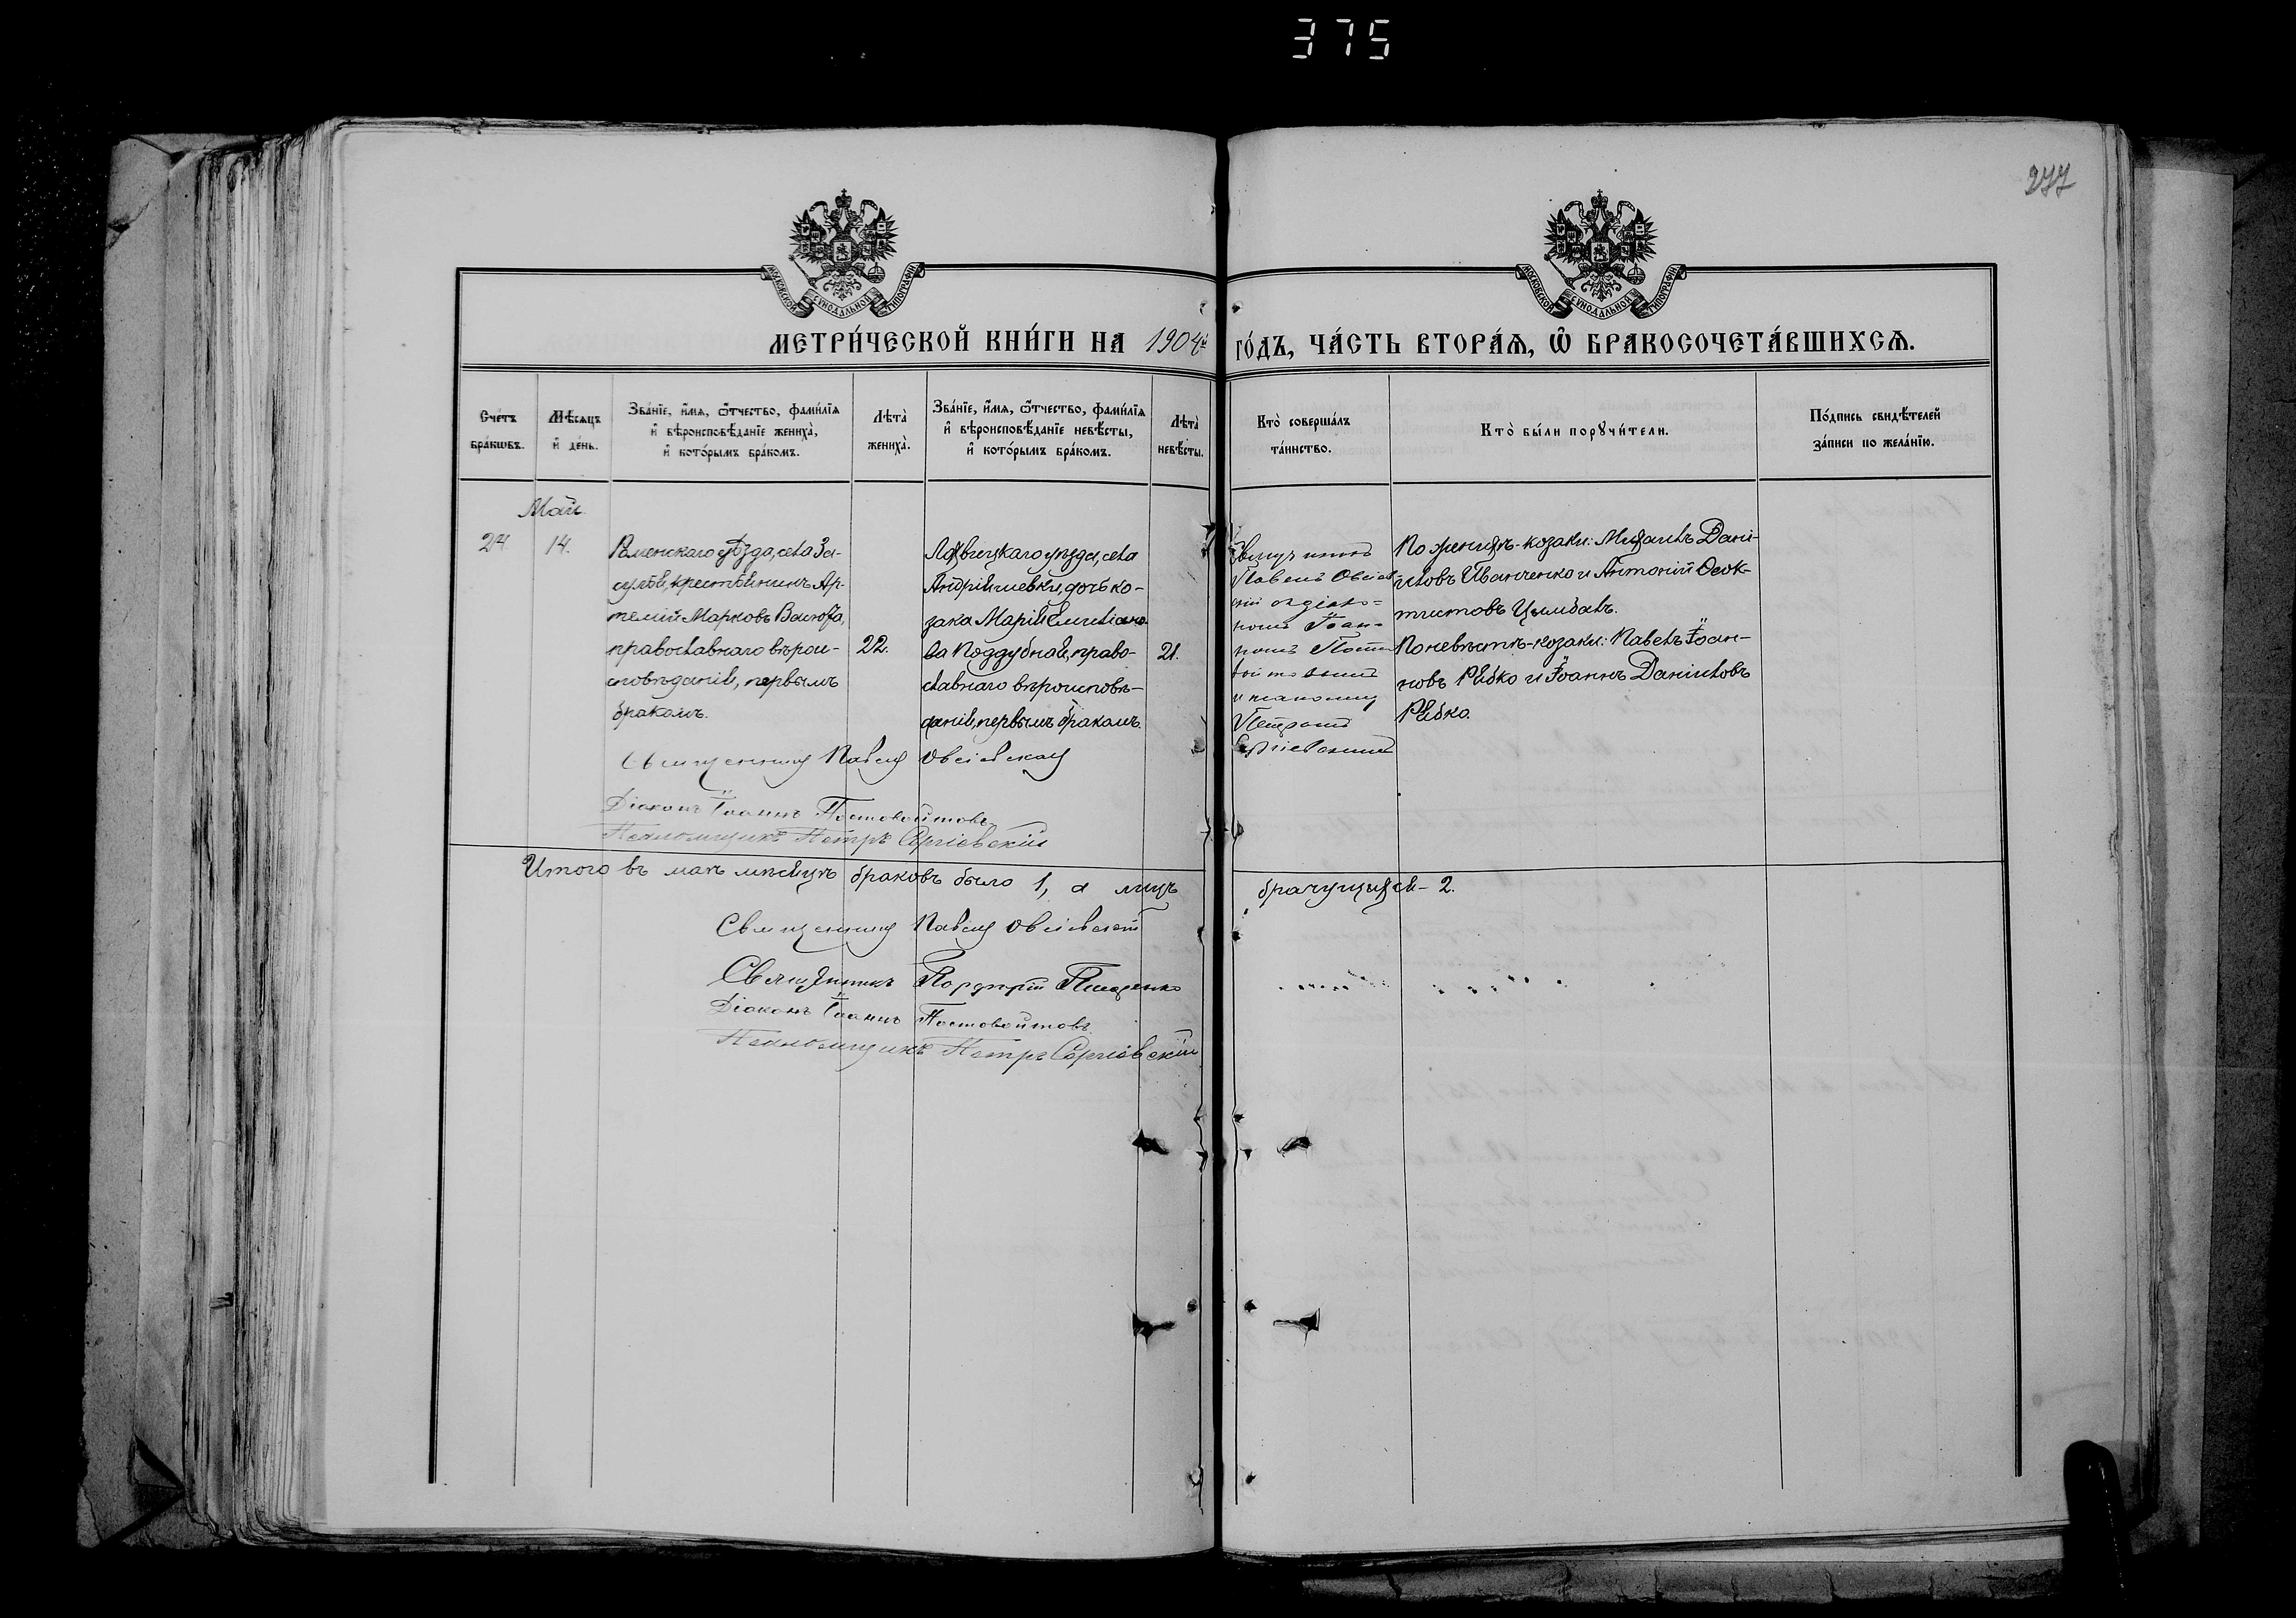 375
277
МОСКОВСКОЙ СУНОДАЛЬНОЙ ТИПОГРАФІИ
МОСКОВСКОЙ СУНОДАЛЬНОЙ ТИПОГРАФІИ
МЕТРИ́ЧЕСКОЙ КНИ́ГИ НА 1904й ГО́ДЪ, ЧА́СТЬ ВТОРА́Я, Ѿ БРАКОСОЧЕТА́ВШИХСЯ.
Сче́тъ бра́кѡвъ.
Мѣ́сяцъ и҆ де́нь.
Зва́нїе, и҆́мя, ѻ҆́тчество, фами́лїя и҆ вѣроисповѣ́данїе жениха̀, и҆ кото́рымъ бра́комъ.
Лѣта̀ жениха̀.
Зва́нїе, и҆́мя, ѻ҆́тчество, фами́лїя и҆ вѣроисповѣ́данїе невѣ́сты, и҆ кото́рымъ бра́комъ.
Лѣта̀ невѣ́сты.
Кто̀ соверша́лъ та́инство.
Кто̀ бы́ли порꙋчи́тели.
По́дпись свидѣ́телей за́писи по жела́нїю.
Май
24. 14.
Роменскаго уѣзда, села За-
сулья, крестьянинъ Ар-
темій Марковъ
православнаго вѣрои-
сповѣданія, первымъ
бракомъ.
22.
Лохвицкаго уѣзда, села
Андріяшевки, дочь ко-
зака Марія Емиліано-
ва Поддубная, право-
славнаго вѣроисповѣ-
данія, первымъ бракомъ.
21.
Священникъ
Павелъ Овсіев-
скій съ діако-
номъ Іоан-
номъ Посто-
войтовымъ
и псаломщ.
Петромъ
Сергіевскимъ
По женихѣ-козаки: Михаилъ Дани-
иловъ Иванченко и Антоній Ѳеок-
тистовъ Цымбалъ.
По невѣстѣ-козаки: Павелъ Іоан-
новъ Рябко и Іоаннъ Даніиловъ
Рябко.
Священникъ Павелъ Овсіевскій
Діаконъ Іоаннъ Постовойтовъ
Псаломщикъ Петръ Сергіевскій
Итого въ маѣ мѣсяцѣ браковъ было 1, а лицъ брачущихся - 2.
Священникъ Павелъ Овсіевскій
Священникъ Порфирій
Діаконъ Іоаннъ Постовойтовъ
Псаломщикъ Петръ Сергіевскій